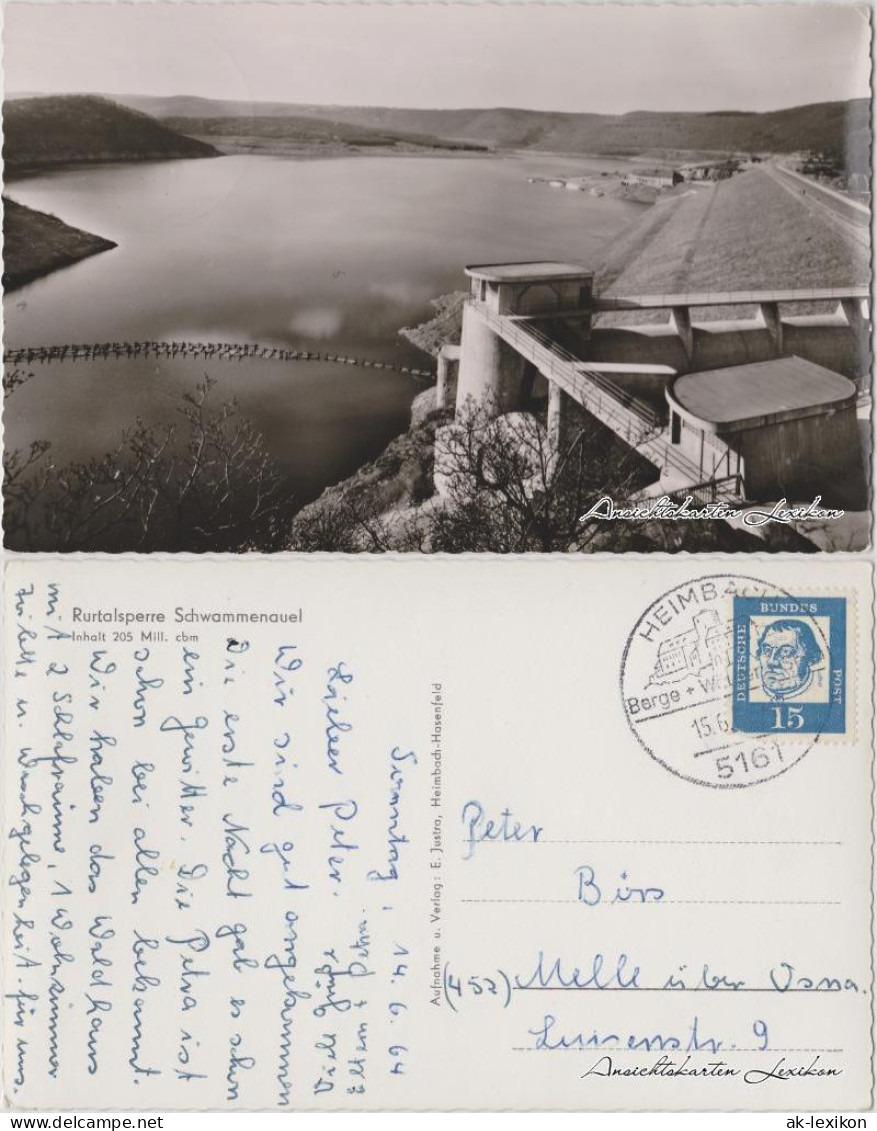 Ansichtskarten Lexikon
Rurtalsperre Schwammenauel
Inhalt 205 Mill. cbm
Sonntag, 14.6.64
Lieber Peter.
Wir sind gut angekommen
Die erste Nacht gab es schon
ein Gewitter. Die Petra ist
schon bei allen bekannt.
Wir haben das Waldhaus
mit 2 Schlafräume, 1 Wohnzimmer
Toilette u. Waschgelegenheit für uns.
Viele Grüße
Eltern + Petra.
Aufnahme u. Verlag: E. Justra, Heimbach-Hasenfeld
HEIMBACH
Berge + W
15.6
5161
DEUTSCHE
BUNDES
POST
15
Peter
Börs
(452) Melle über Osna.
Luisenstr. 9
Ansichtskarten Lexikon
ak-ansichtskarten.de
ak-lexikon